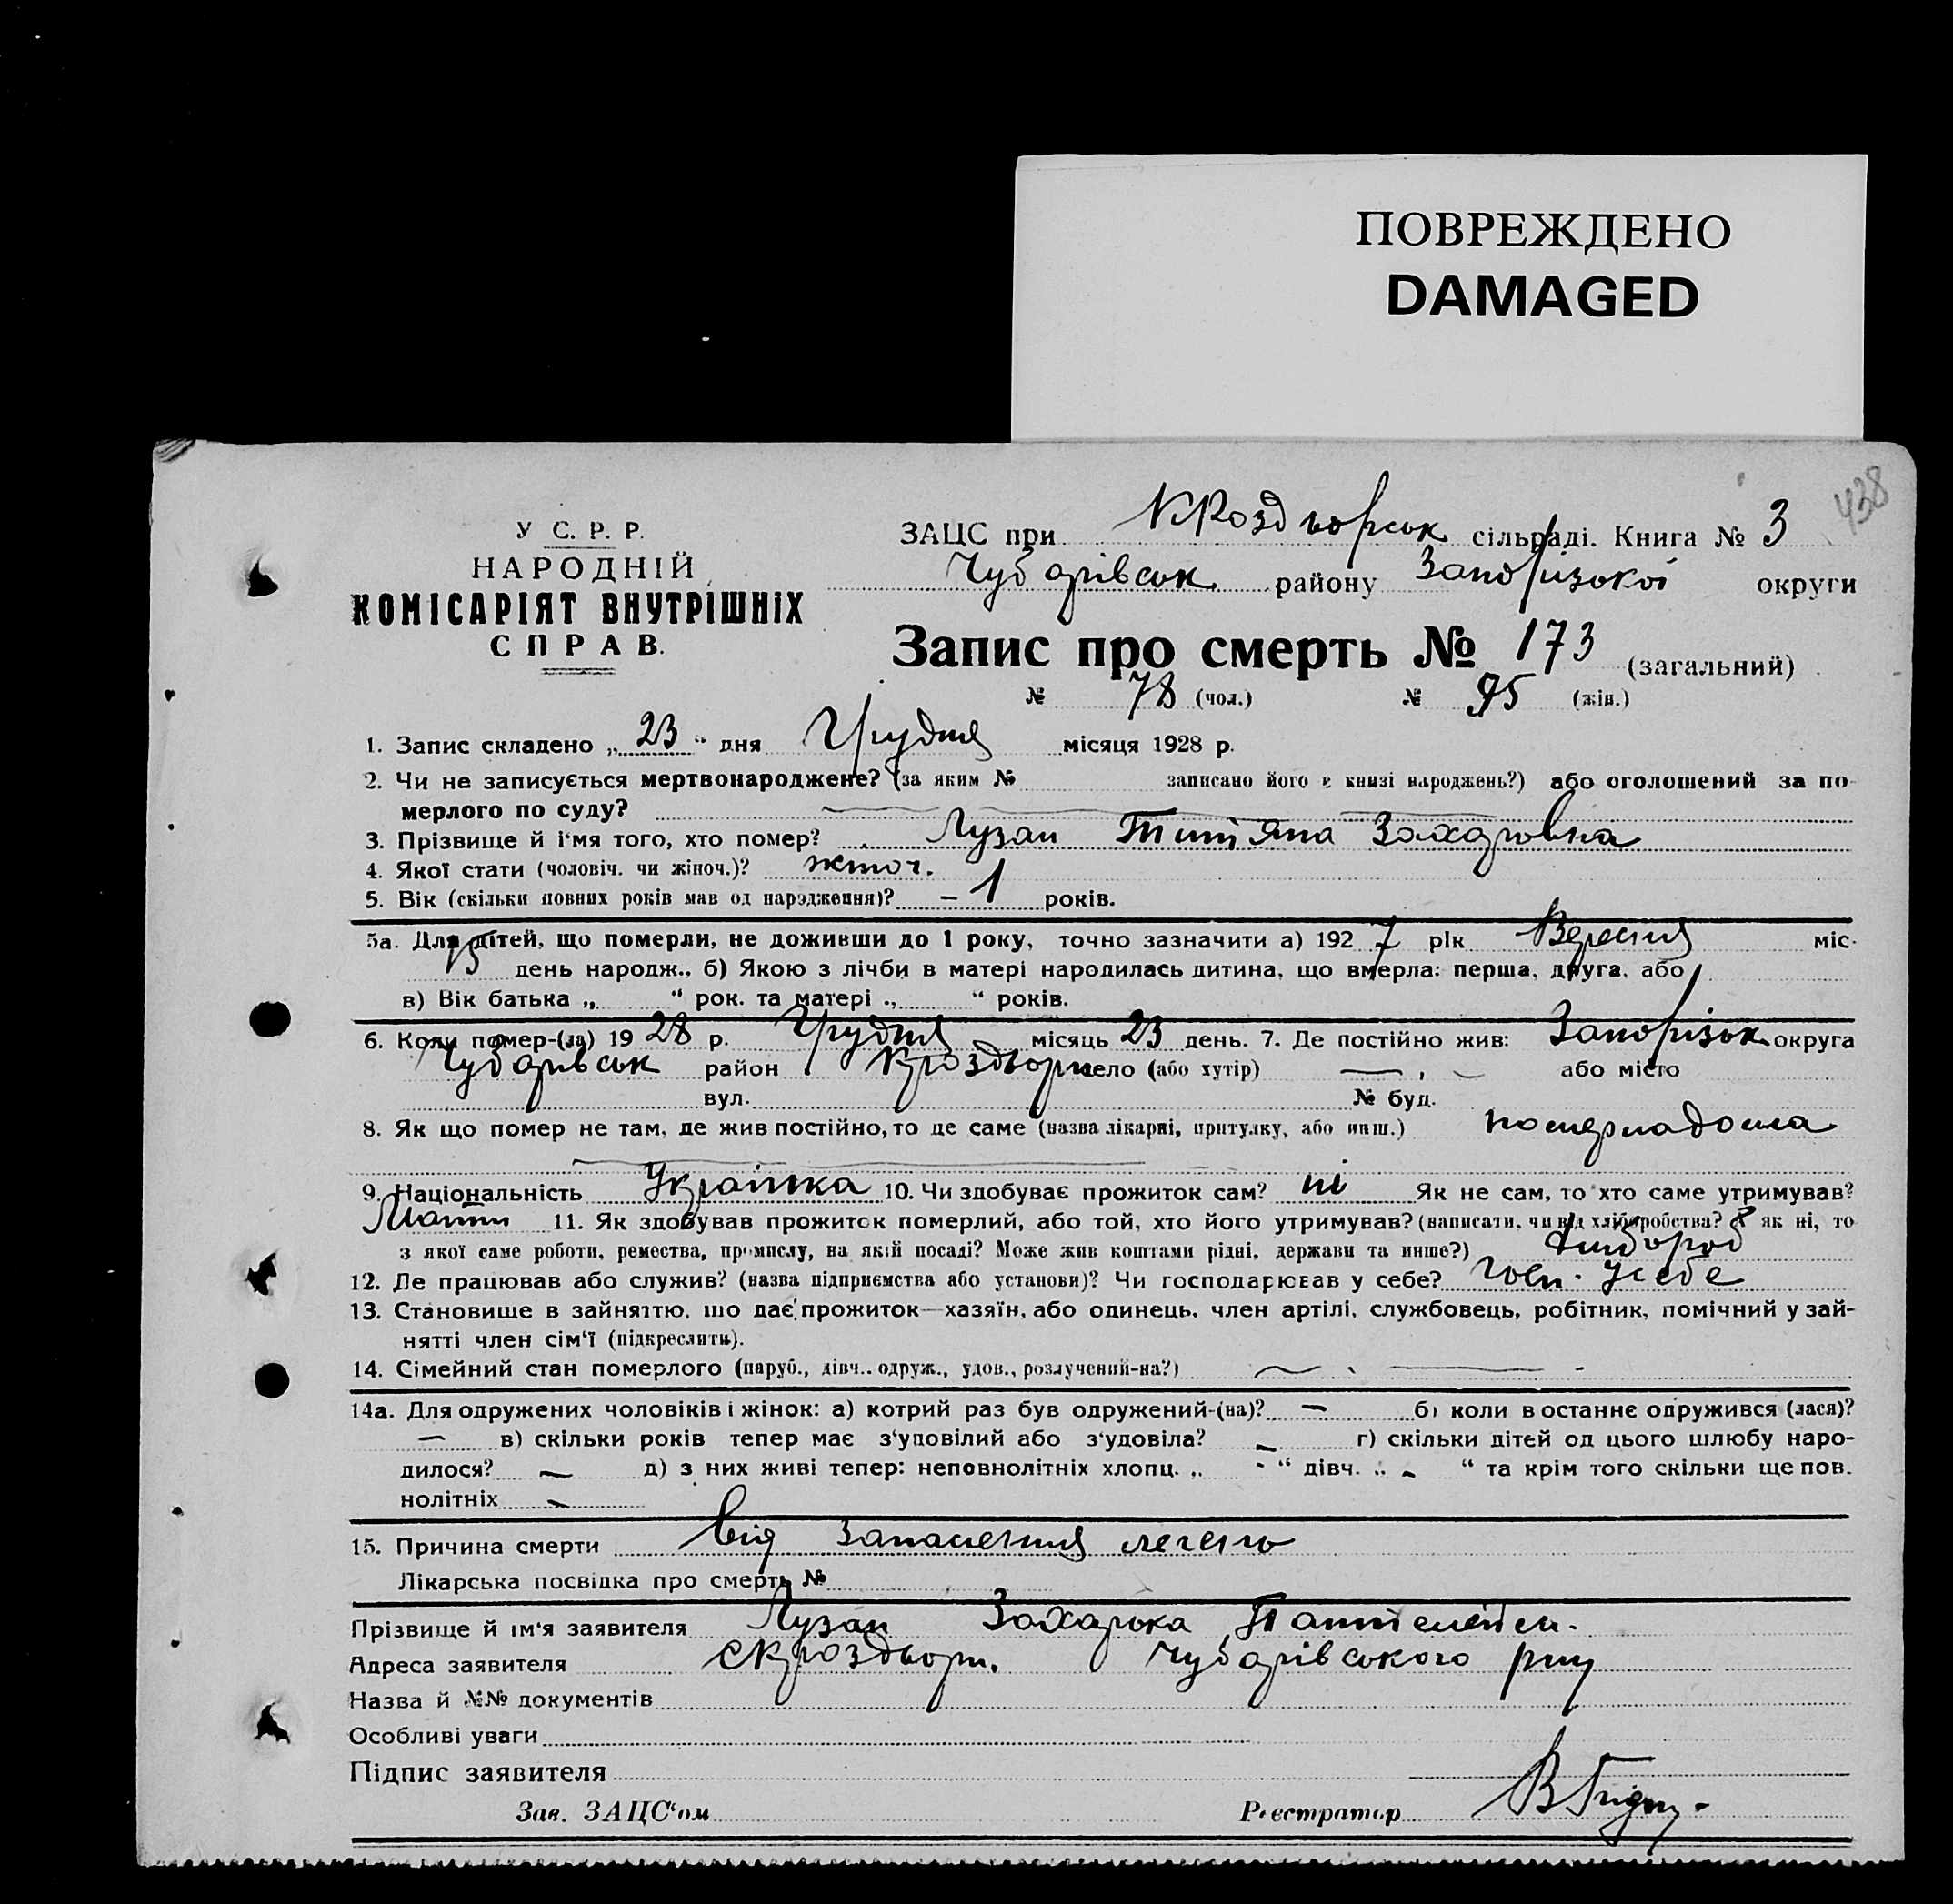 ПОВРЕЖДЕНО
DAMAGED
438
У С. Р. Р.
НАРОДНІЙ
КОМІСАРІЯТ ВНУТРІШНІХ
СПРАВ.
ЗАЦС при сільраді. Книга № 3
Чубарівськ району Запорізької округи
Запис про смерть № 173 (загальний)
№ 78 (чол.) № 95 (жін.)
1. Запис складено „ 23 “ дня Грудня місяця 1928 р.
2. Чи не записується мертвонароджене? (за яким № записано його в книзі народжень?) або оголошений за по-
мерлого по суду?
3. Прізвище й і‘мя того, хто помер? Лузан Тит‘яна Захаровна
4. Якої стати (чоловіч. чи жіноч.)? жіноч.
5. Вік (скільки повних років мав од народження)? – 1 років.
5а. Для дітей, що померли, не доживши до 1 року, точно зазначити а) 192 7 рік Вересня міс.
15 день народж., б) Якою з лічби в матері народилась дитина, що вмерла: перша, друга, або
в) Вік батька „ “ рок. та матері „ “ років.
6. Коли помер-(ла) 19 28 р. Грудня місяць 23 день. 7. Де постійно жив: Запорізьк округа
Чубарівськ район село (або хутір) або місто
вул. № буд.
8. Як що помер не там, де жив постійно, то де саме (назва лікарні, притулку, або инш.) померла дома
9. Національність Українка 10. Чи здобуває прожиток сам? ні Як не сам, то хто саме утримував?
11. Як здобував прожиток померлий, або той, хто його утримував? (написати, чи від хліборобства? А як ні, то
з якої саме роботи, ремества, промислу, на якій посаді? Може жив коштами рідні, держави та инше?) хлібороб
12. Де працював або служив? (назва підприємства або установи)? Чи господарював у себе? Госп. у себе
13. Становище в зайняттю, що дає прожиток—хазяїн, або одинець, член артілі, службовець, робітник, помічний у зай-
нятті член сім‘ї (підкреслити).
14. Сімейний стан померлого (паруб., дівч., одруж., удов., розлучений-на?)
14а. Для одружених чоловіків і жінок: а) котрий раз був одружений-(на)? — б) коли в останнє одружився (лася)?
— в) скільки років тепер має з‘уповілий або з‘удовіла? — г) скільки дітей од цього шлюбу наро-
дилося? — д) з них живі тепер: неповнолітніх хлопц. „ - “ дівч. „ - “ та крім того скільки ще пов.
нолітніх —
15. Причина смерти від запалення легень
Лікарська посвідка про смерть №
Прізвище й ім‘я заявителя Лузан Захарка Пантелейм.
Адреса заявителя Чубарівського р-ну
Назва й №№ документів
Особливі уваги
Підпис заявителя
Зав. ЗАЦС‘ом Реєстратор